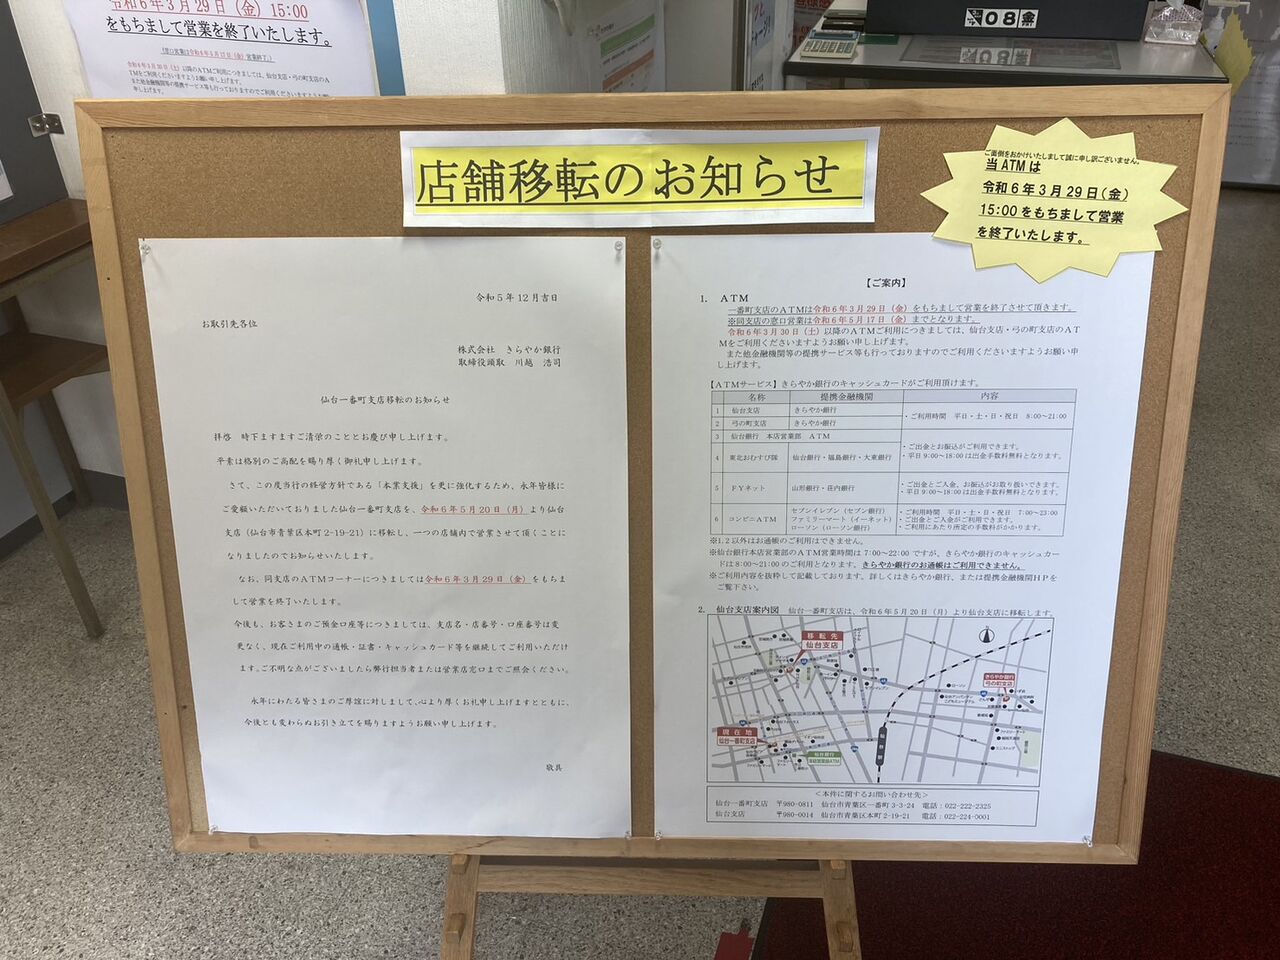 令和6年3月29日（金）15:00
をもちまして営業を終了いたします。
08 金
店舗移転のお知らせ
ご面倒をおかけいたしまして誠に申し訳ございません。
当ATMは
令和6年3月29日（金）
15:00をもちまして営業
を終了いたします。
令和5年12月吉日
お取引先各位
株式会社　きらやか銀行
取締役頭取　川越　浩司
仙台一番町支店移転のお知らせ
拝啓　時下ますますご清栄のこととお慶び申し上げます。
平素は格別のご高配を賜り厚く御礼申し上げます。
さて、この度当行の経営方針である「本業支援」を更に強化するため、永年皆様に
ご愛顧いただいておりました仙台一番町支店を、令和6年5月20日（月）より仙台
支店（仙台市青葉区本町2-19-21）に移転し、一つの店舗内で営業させて頂くことに
なりましたのでお知らせいたします。
なお、同支店のATMコーナーにつきましては令和6年3月29日（金）をもちま
して営業を終了いたします。
今後も、お客さまのご預金口座等につきましては、支店名・店番号・口座番号は変
更なく、現在ご利用中の通帳・証書・キャッシュカード等を継続してご利用いただけ
ます。ご不明な点がございましたら弊行担当者または営業店窓口までご照会ください。
永年にわたる皆さまのご厚誼に対しまして、心より厚くお礼申し上げますとともに、
今後とも変わらぬお引き立てを賜りますようお願い申し上げます。
敬具
【ご案内】
1.　ATM
一番町支店のATMは令和6年3月29日（金）をもちまして営業を終了させて頂きます。
※同支店の窓口営業は令和6年5月17日（金）までとなります。
令和6年3月30日（土）以降のATMご利用につきましては、仙台支店・弓の町支店のAT
Mをご利用くださいますようお願い申し上げます。
また他金融機関等の提携サービス等も行っておりますのでご利用くださいますようお願い申
し上げます。
【ATMサービス】きらやか銀行のキャッシュカードがご利用頂けます。
名称　提携金融機関　内容
1　仙台支店　きらやか銀行　・ご利用時間　平日・土・日・祝日　8:00~21:00
2　弓の町支店　きらやか銀行
3　仙台銀行　本店営業部　ATM
4　東北おむすび隊　仙台銀行・福島銀行・大東銀行　・ご出金とお振込がご利用できます。
・平日9:00~18:00は出金手数料無料となります。
5　FYネット　山形銀行・荘内銀行　・ご出金とご入金、お振込がお取り扱いできます。
・平日9:00~18:00は出金手数料無料となります。
6　コンビニATM　セブンイレブン（セブン銀行）　・ご利用時間　平日・土・日・祝日　7:00~23:00
ファミリーマート（イーネット）　・ご出金とご入金がご利用できます。
ローソン（ローソン銀行）　・ご利用にあたり所定の手数料がかかります。
※1.2以外はお通帳のご利用はできません。
※仙台銀行本店営業部のATM営業時間は7:00~22:00ですが、きらやか銀行のキャッシュカー
ドは8:00~21:00のご利用となります。きらやか銀行のお通帳はご利用できません。
※ご利用内容を抜粋して記載しております。詳しくはきらやか銀行、または提携金融機関HPを
ご覧下さい。
2.　仙台支店案内図　仙台一番町支店は、令和6年5月20日（月）より仙台支店に移転します。
移転先
仙台支店
きらやか銀行
弓の町支店
現在地
仙台一番町支店
仙台銀行
本店営業部ATM
＜本件に関するお問い合わせ先＞
仙台一番町支店　〒980-0811　仙台市青葉区一番町3-3-24　電話：022-222-2325
仙台支店　〒980-0014　仙台市青葉区本町2-19-21　電話：022-224-0001